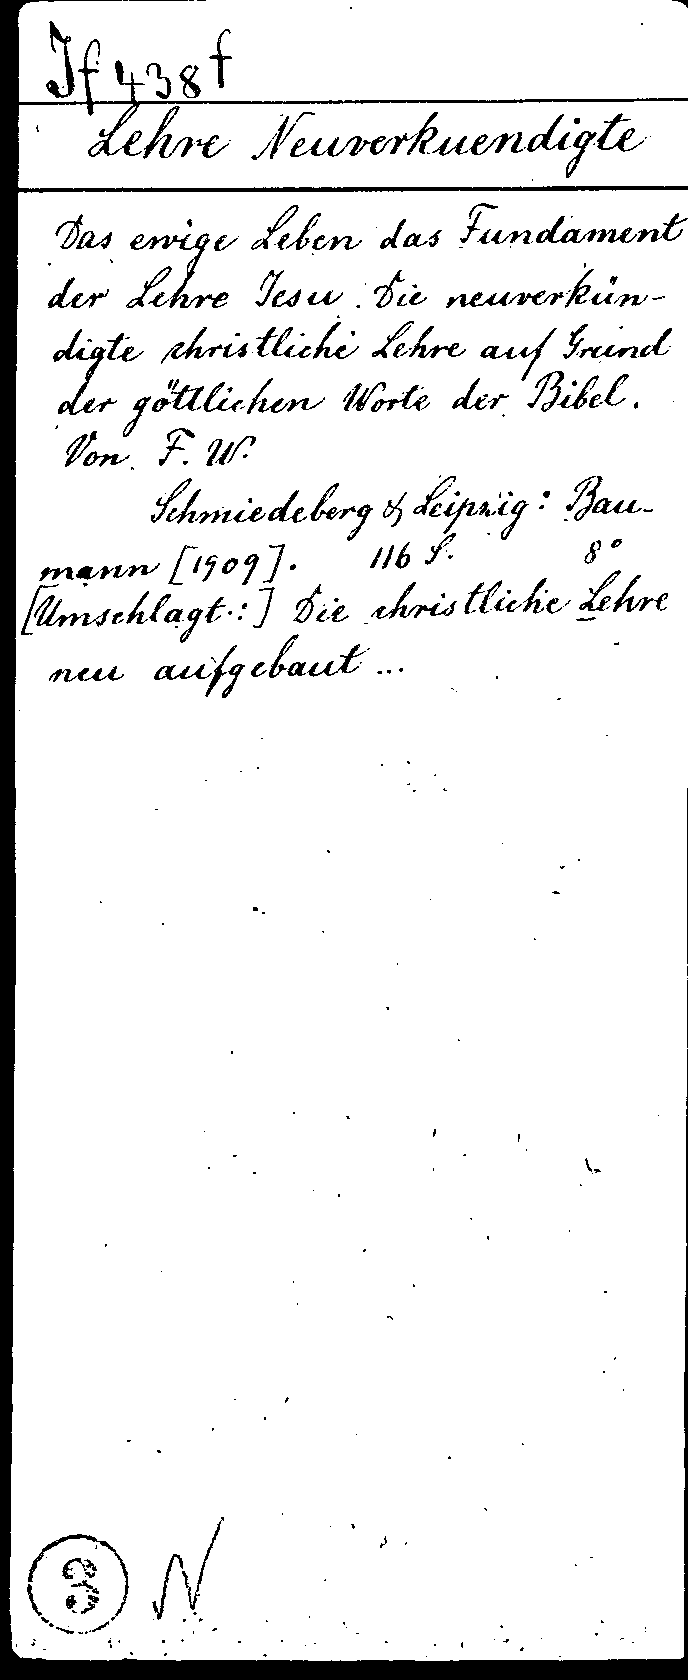 If 438 f
Lehre Neuverkuendigte
Das ewige Leben das Fundament
der Lehre Jesu. Die neuverkün-
digte christliche Lehre auf Grund
der göttlichen Worte der Bibel.
Von F. W.
Schmiedeberg & Leipzig: Bau-
mann [1909]. 116 S. 8°
[Umschlagt.:] Die christliche Lehre
neu aufgebaut ...
3 N